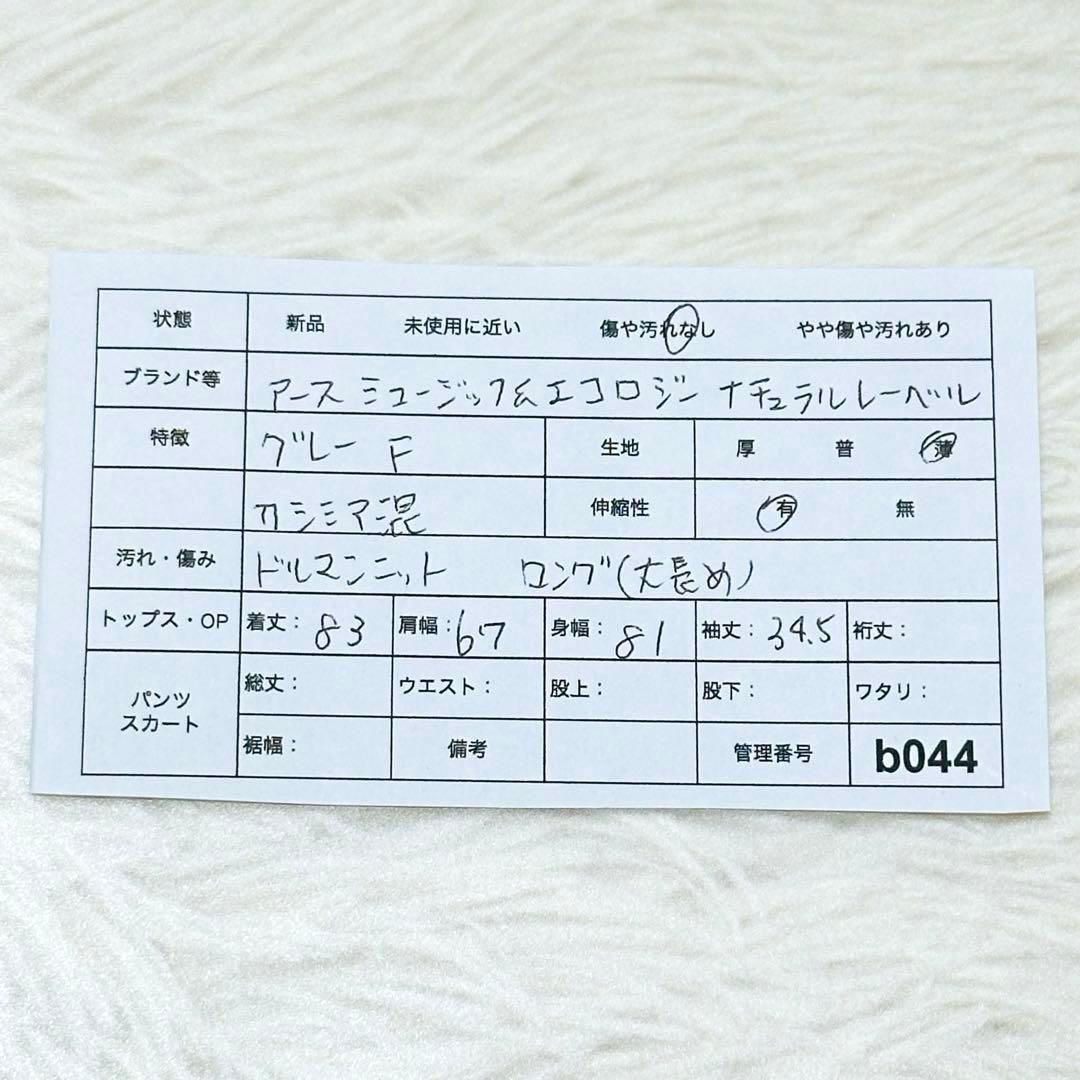 状態 新品 未使用に近い 傷や汚れなし やや傷や汚れあり
ブランド等 アース ミュージック&エコロジー ナチュラルレーベル
特徴 グレー F 生地 厚 普 薄
カシミア混 伸縮性 有 無
汚れ・傷み ドルマンニット ロング(丈長め)
トップス・OP 着丈: 83 肩幅: 67 身幅: 81 袖丈: 34.5 裄丈:
パンツ スカート 総丈: ウエスト: 股上: 股下: ワタリ:
裾幅: 備考 管理番号 b044